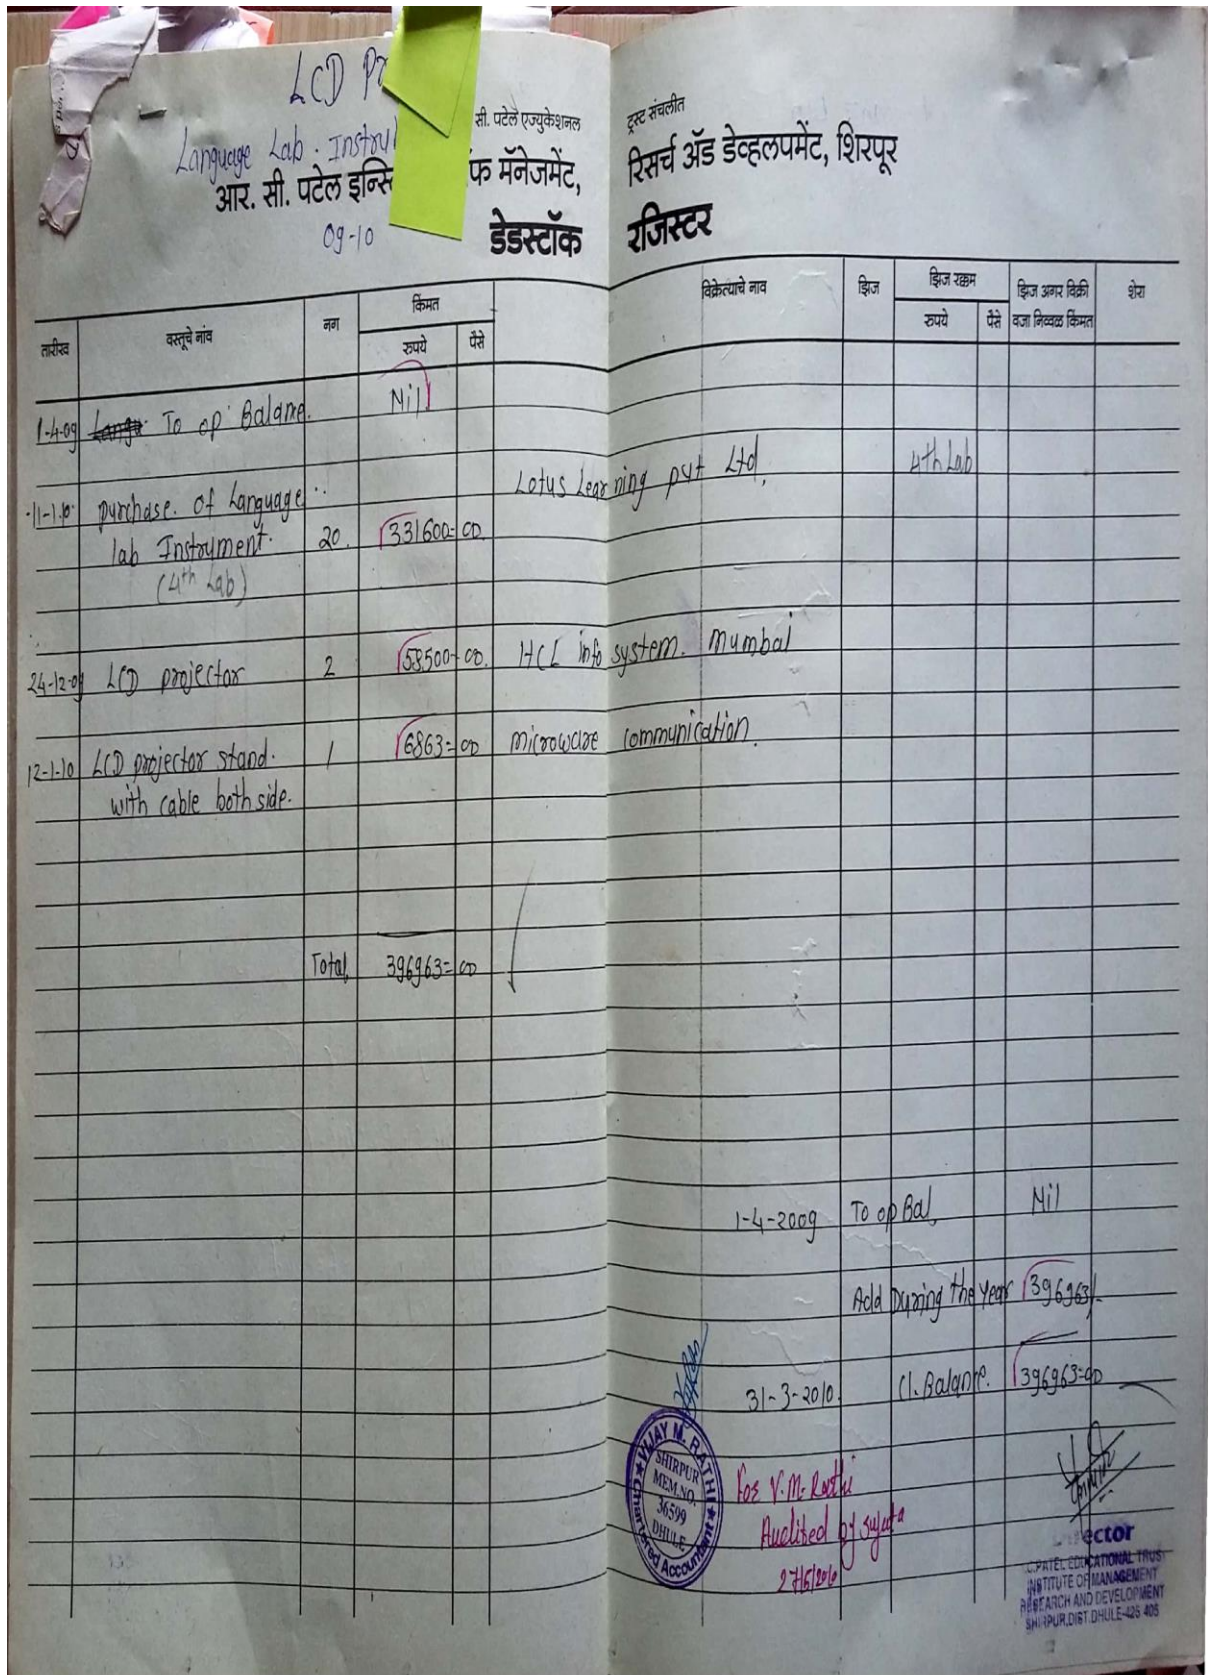 LCD
Language Lab. Instru
सी. पटेल एज्युकेशनल ट्रस्ट संचलीत
आर. सी. पटेल फ मॅनेजमेंट, रिसर्च अँड डेव्हलपमेंट, शिरपूर
09-10
डेडस्टॉक रजिस्टर
तारीख वस्तूचे नांव नग किंमत रुपये पैसे विक्रेत्याचे नाव झिज झिज रक्कम रुपये पैसे झिज अगर विक्री वजा निव्वळ किंमत शेरा
1-4-09 To op Balance. Nil
11-1-10 purchase of Language Lotus Learning pvt Ltd. 4th Lab
lab Instrument. 20. 331600=00
(4th Lab)
24-12-09 LCD projector 2 58500=00 HCL info system. Mumbai
12-1-10 LCD projector stand. 1 6863=00 Microware communication.
with cable both side.
Total, 396963=00
1-4-2009 To op Bal, Nil
Add During the year 396963/-
31-3-2010. Cl. Balance. 396963=00
VIJAY M. RATHI
SHIRPUR
MEM.NO.
36599
DHULE
Chartered Accountant
For V. M. Rathi
Audited by Sujata
ector
C.PATEL EDUCATIONAL TRUST
INSTITUTE OF MANAGEMENT
RESEARCH AND DEVELOPMENT
SHIRPUR,DIST.DHULE-425 405